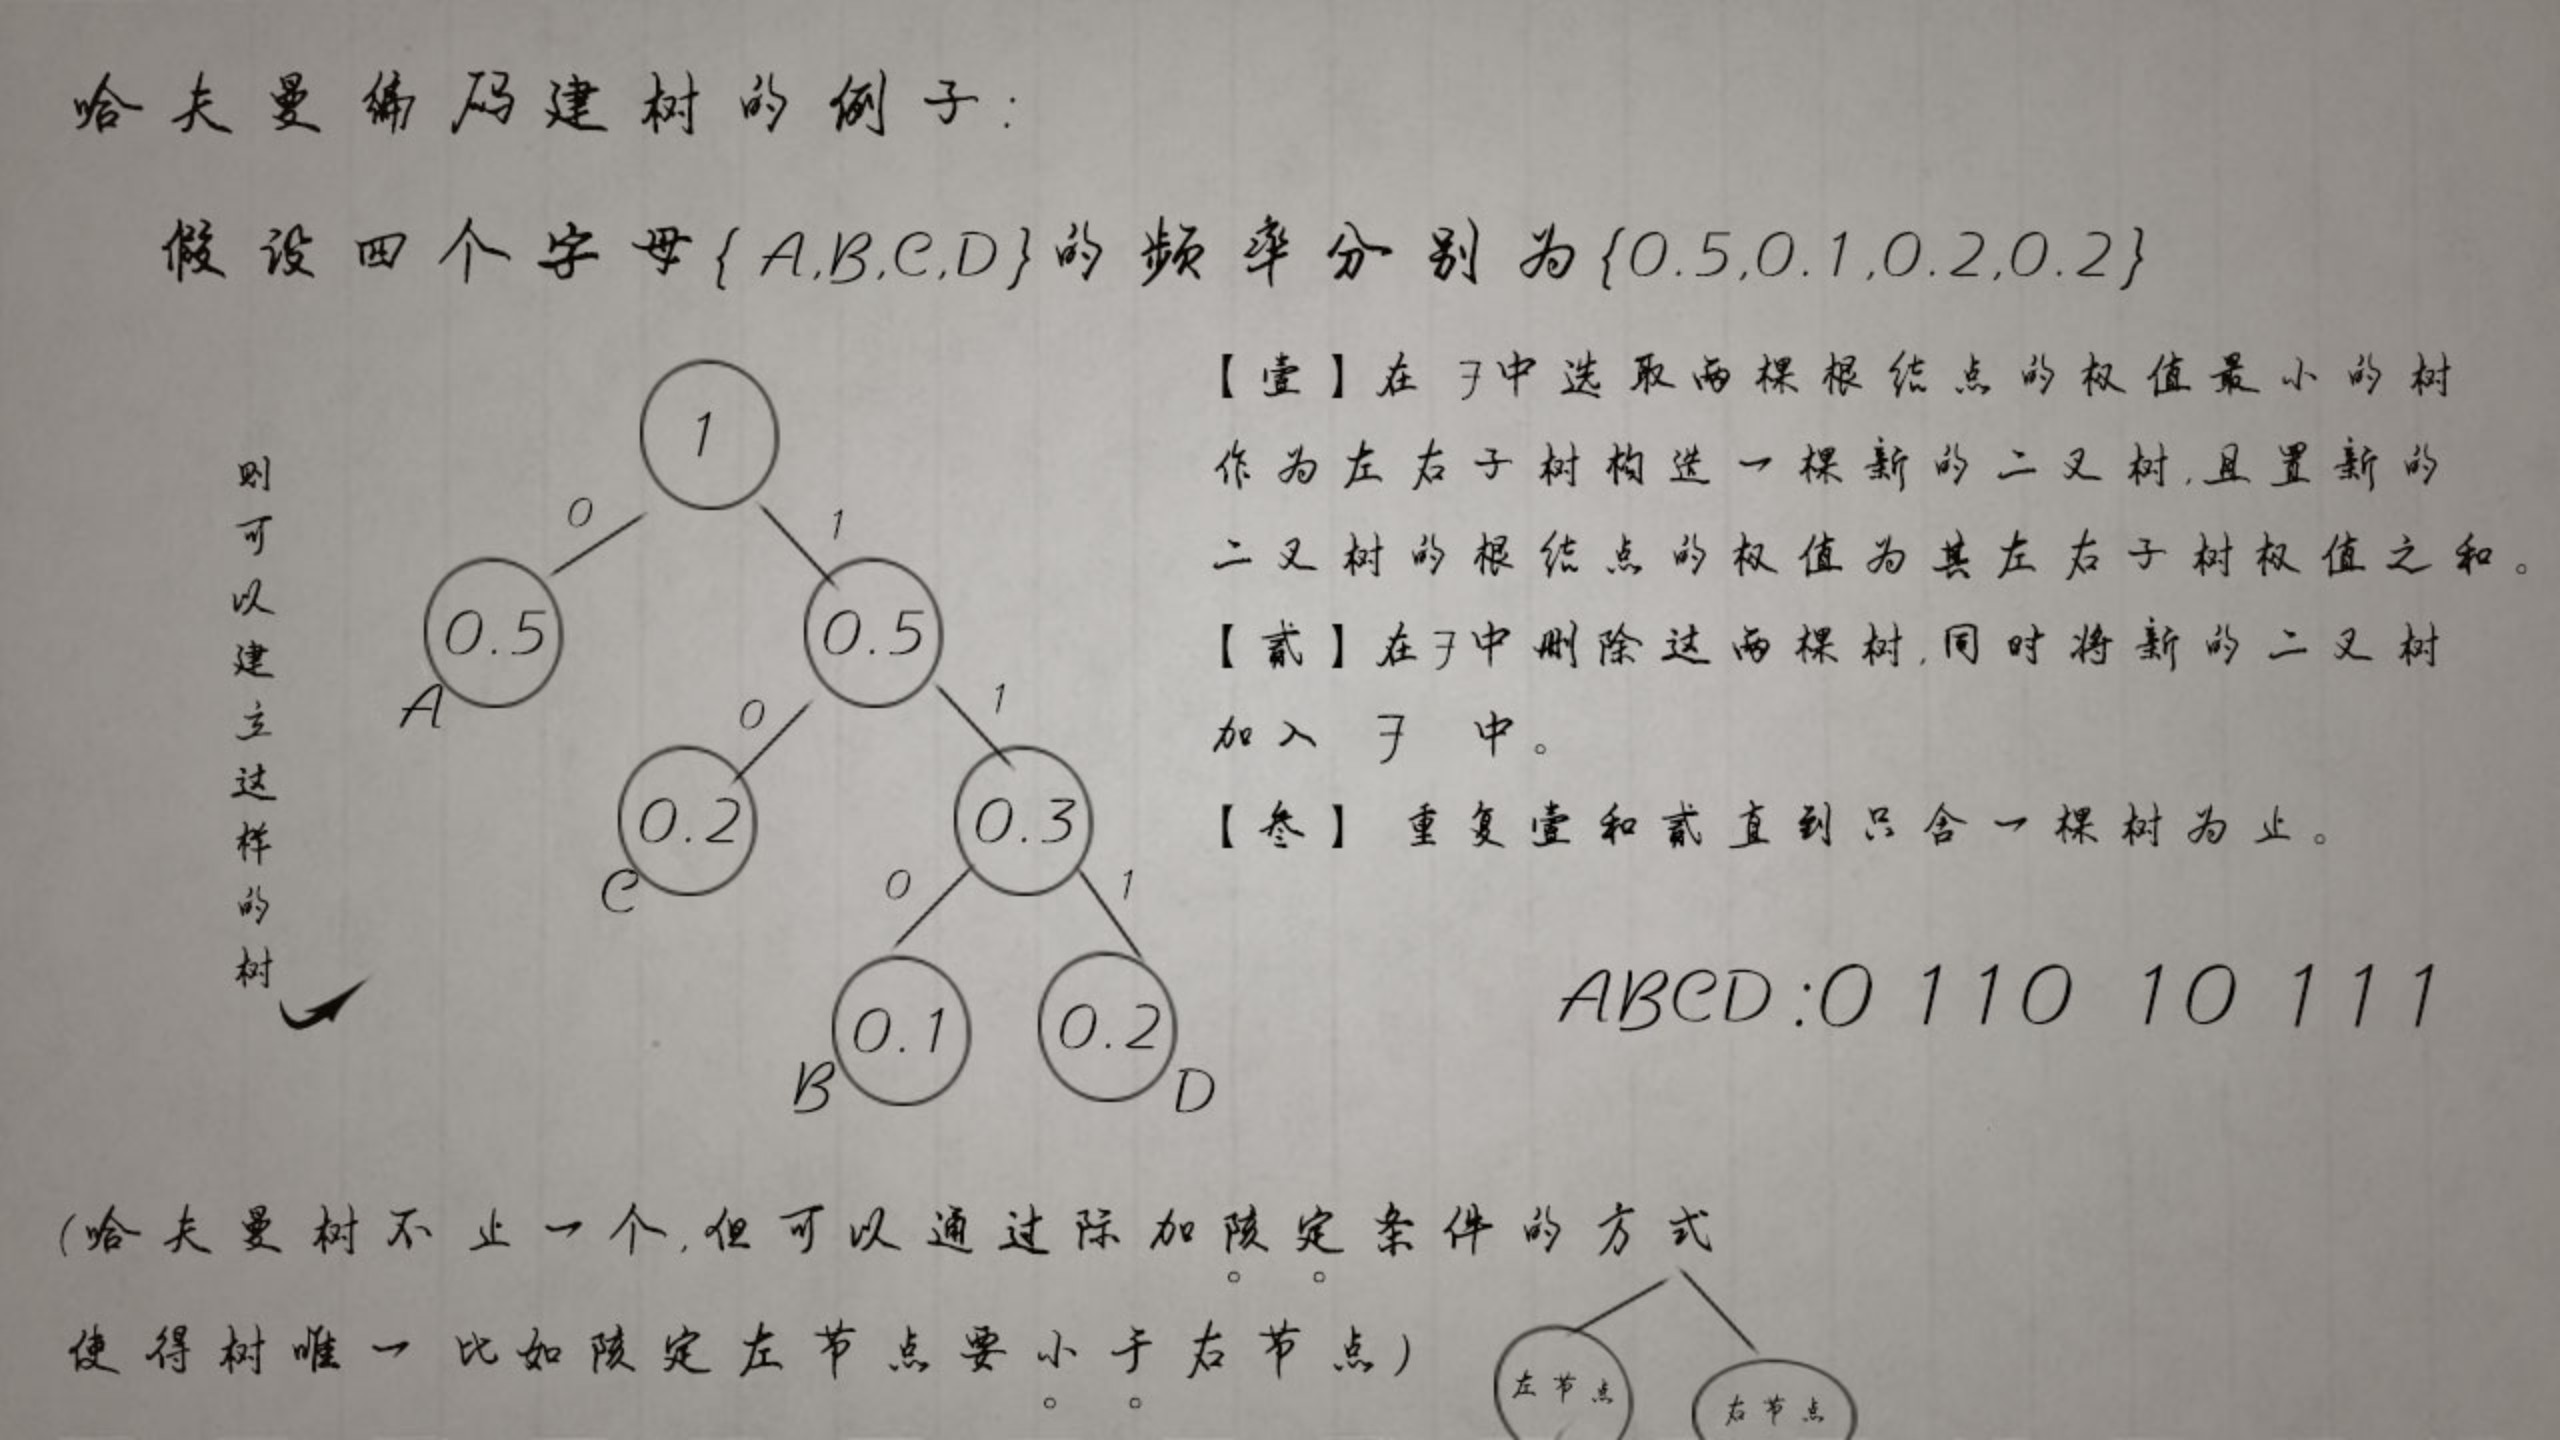 哈夫曼编码建树的例子:
假设四个字母{A,B,C,D}的频率分别为{0.5,0.1,0.2,0.2}
则可以建立这样的树
1
0
1
0.5
0.5
A
0
1
0.2
0.3
C
0
1
0.1
0.2
B
D
【壹】在 F中选取两棵根结点的权值最小的树
作为左右子树构造一棵新的二叉树,且置新的
二叉树的根结点的权值为其左右子树权值之和。
【贰】在F中删除这两棵树,同时将新的二叉树
加入 F 中。
【叁】重复壹和贰直到只含一棵树为止。
ABCD:0 110 10 111
(哈夫曼树不止一个,但可以通过际加限定条件的方式
使得树唯一 比如限定左节点要小于右节点)
左节点
右节点